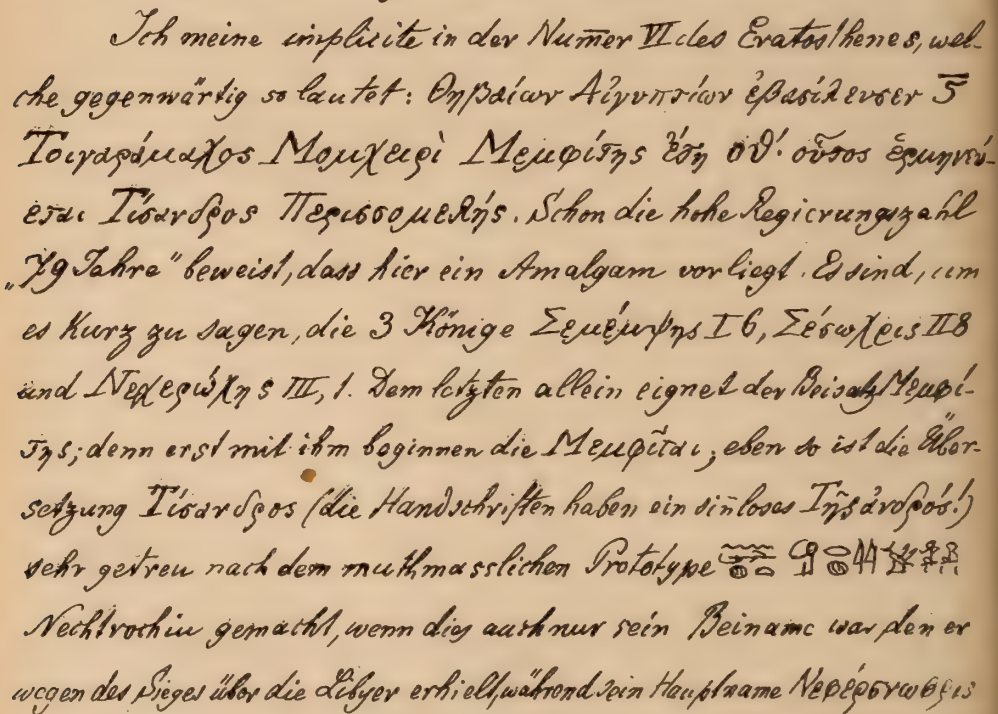 Ich meine implicite in der Num̄er VI des Eratosthenes, wel-
che gegenwärtig so lautet: Θηβαίων Αἰγυπτίων ἐβασίλευσεν ϛ̅
Τοιγαράμαχος Μομχειρὶ Μεμφίτης ἔτη οθ΄· οὗτος ἑρμηνεύ-
εται Τίσανδρος Περισσομελής. Schon die hohe Regierungszahl
„79 Jahre" beweist, dass hier ein Amalgam vorliegt. Es sind, um
es kurz zu sagen, die 3 Könige Σεμέμψης I 6, Σέσωχρις II 8
und Νεχερώχης III, 1. Dem letzten allein eignet der Beisatz Μεμφί-
της; denn erst mit ihm beginnen die Μεμφῖται; eben so ist die Über-
setzung Τίσανδρος (die Handschriften haben ein sin̄loses Τῆς ἀνδρός!)
sehr getreu nach dem muthmasslichen Prototype
Nechtrochiu gemacht, wenn dies auch nur sein Beiname war, den er
wegen des Sieges über die Libyer erhielt, während sein Hauptname